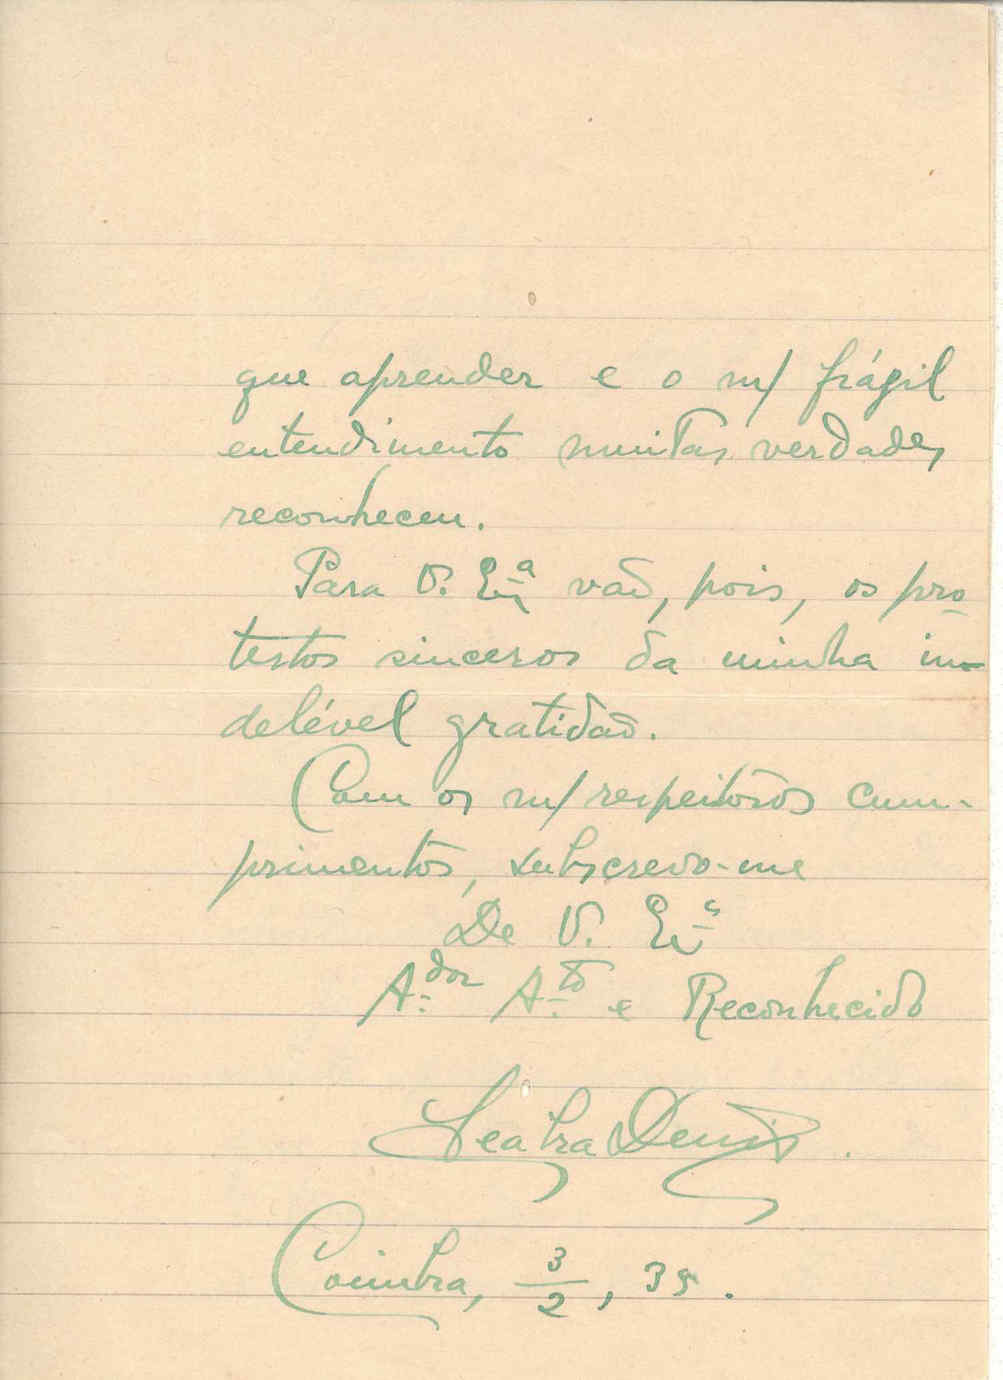 que aprender e o m/ frágil
entendimento muitas verdades
reconheceu.
Para V. Exª vão, pois, os pro-
testos sinceros da minha in-
delével gratidão.
Com os m/ respeitosos cum-
primentos, subscrevo-me
De V. Exª
A.dor A.to e Reconhecido
Seabra Denis.
Coimbra, 3/2, 35.